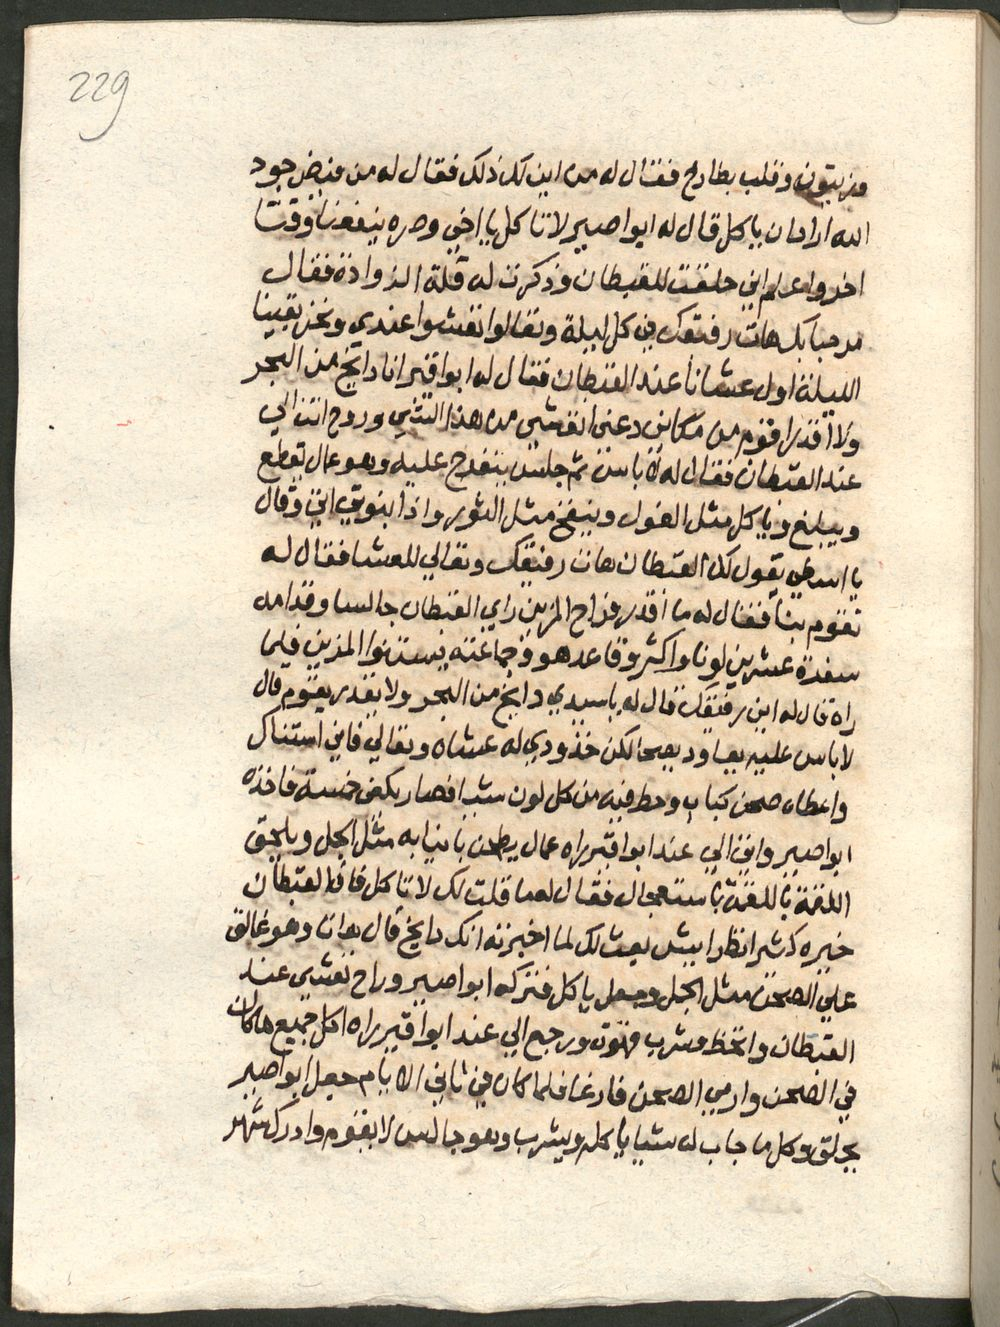 229
وزيتون وقلب بطارخ فقال له من اين لك ذلك فقال له من فيض جود
الله اراد ان ياكل قال له ابوا صير لا تاكل يا اخي وصره ينفعنا وقتا
اخر واعلم اني حلقت للقبطان وذكرت له قلة الزوادة فقال
مرحبا بك هات رفيقك في كل ليلة وتعالوا تعشوا عندي ونحن بقينا
الليلة اول عشانا عند القبطان فقال له ابوا قير انا دايخ من البحر
ولا اقدر اقوم من مكاني دعني اتعشي من هذا الشي وروح انت الي
عند القبطان فقال له لا باس ثم جلس يتفرج عليه وهو عمال يقطع
ويبلع وياكل مثل الغول وينفخ مثل الثور واذا بنوتي اتي وقال
يا اسطي يقول لك القبطان هات رفيقك وتعالي للعشا فقال له
تقوم بنا فقال له ما اقدر فراح المزين راي القبطان جالسا وقدامه
سفرة عشرين لونا واكثر وقاعد هو وجماعته يستنوا المزين فلما
راه قال له اين رفيقك قال له يا سيدي دايخ من البحر ولا يقدر يقوم قال
لا باس عليه يعاود يصحا لكن خذ ودي له عشاه وتعالي فاني استناك
واعطاه صحن كباب وحط فيه من كل لون شيا فصار يكفي خمسة فاخذه
ابوا صير واتي الي عند ابوا قير راه عمال يطحن بانيابه مثل الجمل ويلحق
اللقمة باللقمة باستعجال فقال له ما قلت لك لا تاكل فان القبطان
خيره كثير انظر ايش بعث لك لما اخبرته انك دايخ قال هات وهو غالق
علي الصحن مثل الجمل وجعل ياكل فتركه ابوا صير وراح تعشي عند
القبطان وانحظ وشرب قهوة ورجع الي عند ابوا قير راه اكل جميع ما كان
في الصحن وارمي الصحن فارغا فلما كان في ثاني الايام جعل ابوا صير
يحلق وكل ما جاب له شيا ياكل ويشرب وهو جالس لا يقوم وادرك شهر